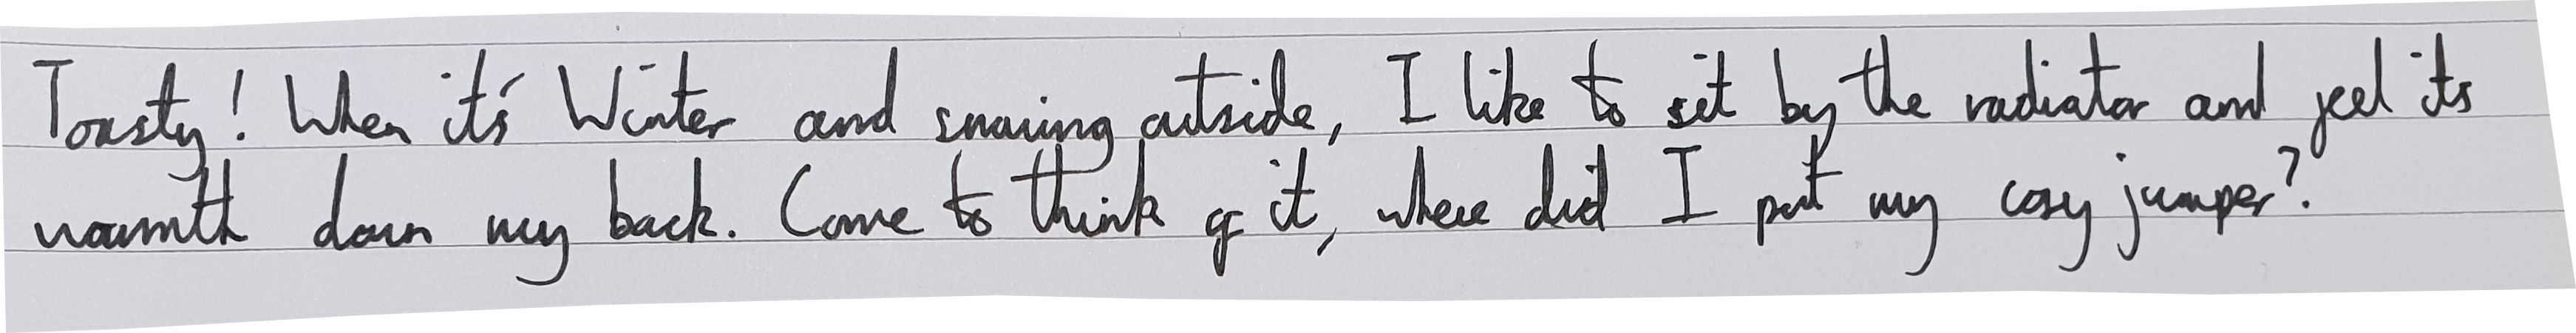 Toasty! When it's Winter and snowing outside, I like to sit by the radiator and feel its
warmth down my back. Come to think of it, where did I put my cosy jumper?